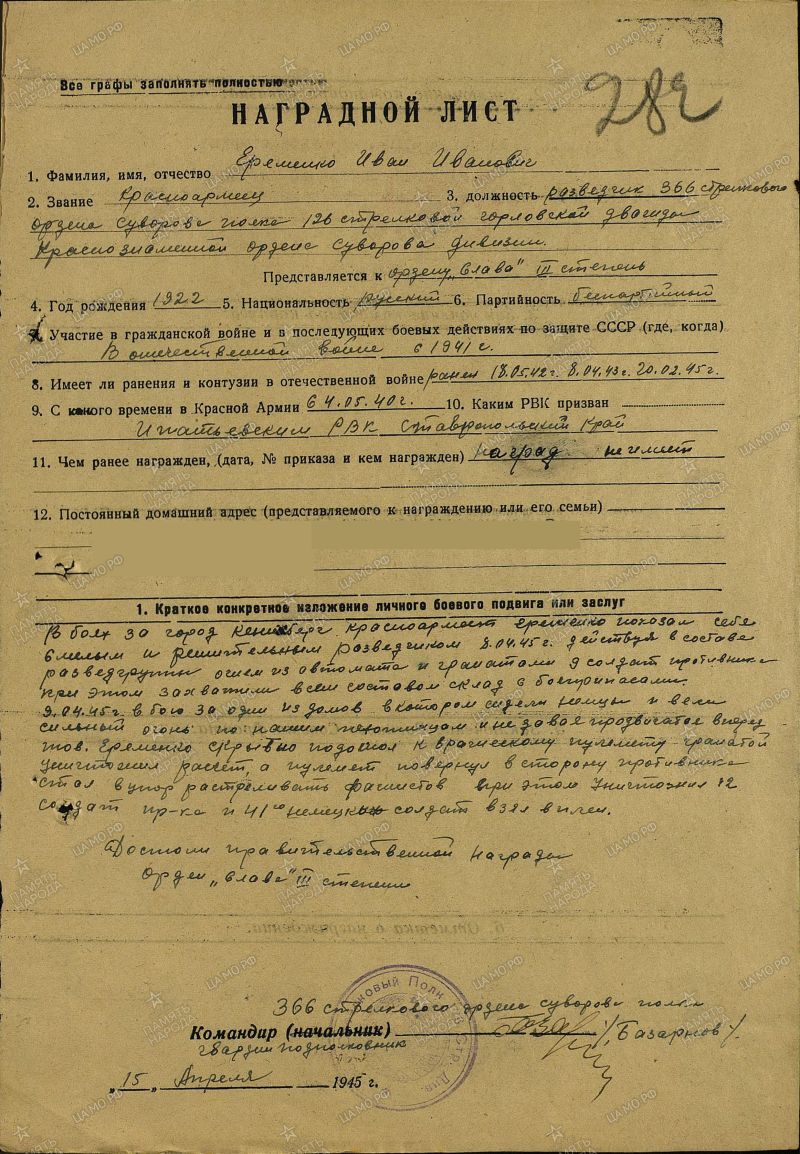 Все графы заполнять полностью
НАГРАДНОЙ ЛИСТ
1. Фамилия, имя, отчество Еременко Иван Иванович
2. Звание Красноармеец 3. должность разведчик 366 стрелкового
ордена Суворова полка 126 стрелковой горловской дважды
Краснознаменной ордена Суворова дивизии.
Представляется к ордену „Слава" III степень
4. Год рождения 1922 5. Национальность русский 6. Партийность беспартийный
Участие в гражданской войне и в последующих боевых действиях по защите СССР (где, когда)
В отечественной войне с 1941 г.
8. Имеет ли ранения и контузии в отечественной войне ранен 18.05.42г. 8.04.43г. 20.02.45г.
9. С какого времени в Красной Армии с 4.05.40г. 10. Каким РВК призван
Ипатьевским РВК Ставропольский край
11. Чем ранее награжден, (дата, № приказа и кем награжден) наград не имеет
12. Постоянный домашний адрес (представляемого к награждению или его семьи)
1. Краткое конкретное изложение личного боевого подвига или заслуг
В боях за город красноармеец Еременко показал себя
смелым и решительным разведчиком 8.04.45г. действуя в составе
разведгруппы огнем из автомата и гранатами 9 солдат противника
при этом захватили всем составом склад с боеприпасами.
9.04.45г. в бою за один из домов в котором сидели немцы и вели
сильный огонь по нашим пехотинцам и не давая продвигатся вперед
тов. Еременко скрытно подошел к вражескому пулемету гранатой
уничтожил расчет, а пулемет повернул в сторону противника
стал в упор растреливать фашистов при этом уничтожил 12
солдат пр-ка и 41 солдат взял в плен.
Достоин правительственной награды
Орден „Слава" III степени
366 стрелкового ордена Суворова полка
Командир (начальник)
гвардии подполковник
„15" Апреля 1945 г.